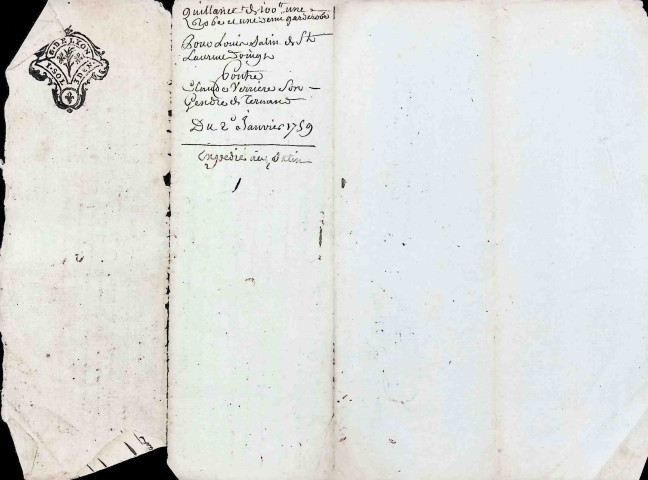 G. DE LYON
1. SOL
Quittance de 100# une
Robe et une demi garderobe
Pour Louis Satin de St
Laurent Doingt
Contre
Claude Verriere Son
Gendre de Ternand
Du 2e Janvier 1759
Expedié au Satin